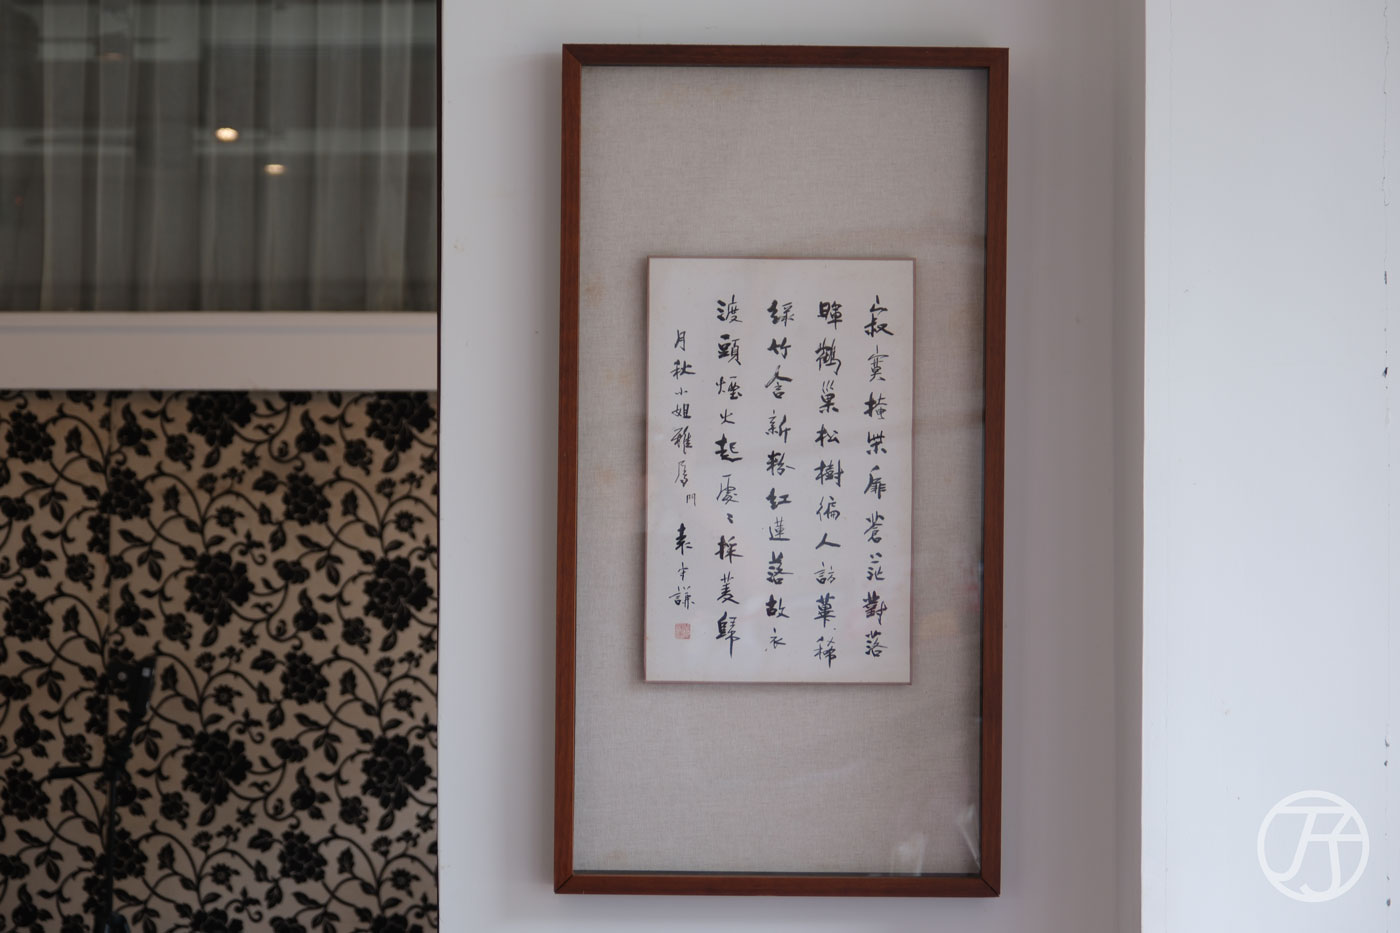 寂寞掩柴扉蒼茫對落
暉鶴巢松樹徧人訪蓽稀
綠竹含新粉紅蓮落故衣
渡頭煙火起處〻採菱歸
月秋小姐雅屬 袁守謙